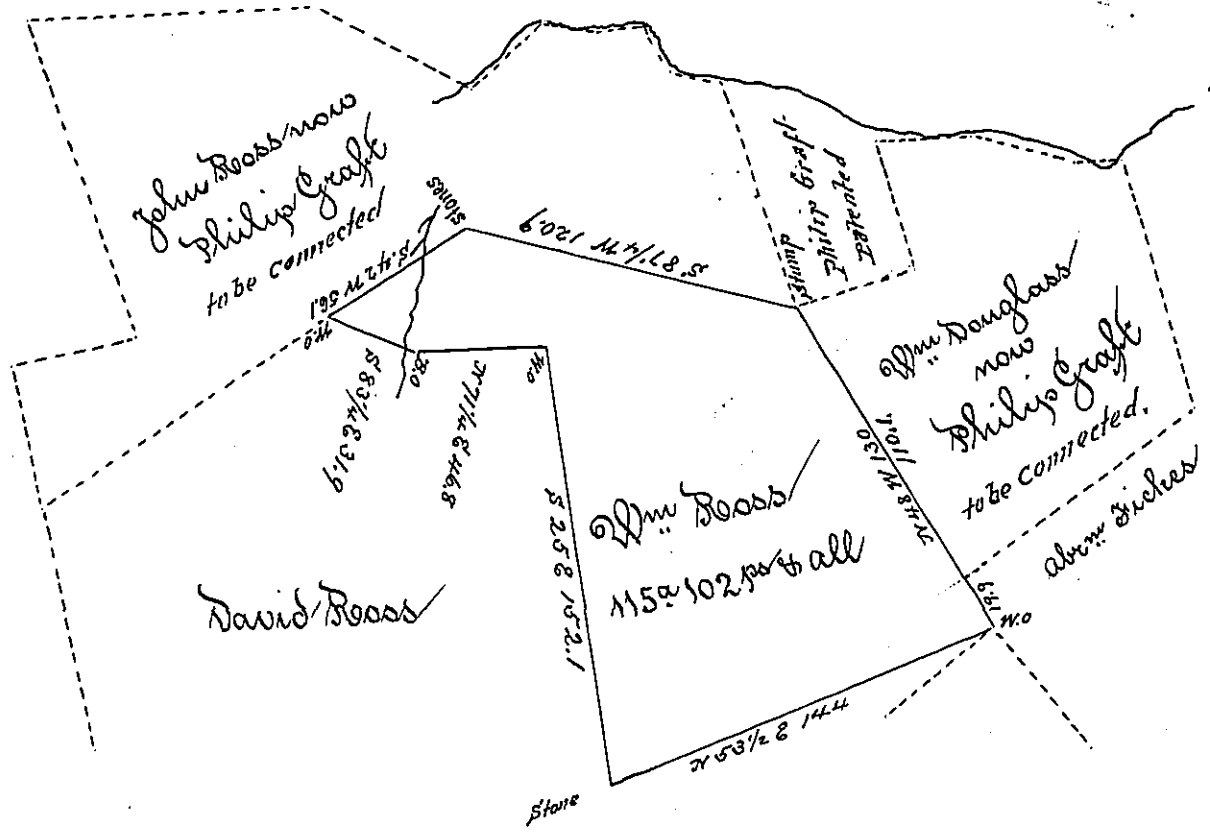 John Ross now
Philip Graft
to be connected
Stones
S 42 W 56.1
W.O
S 83 1/4 E 31.9
B.O
N 71 1/4 E 46.8
W.O
S 87 1/4 W 120.9
Stump
Philip Graft
Patented
Wm Douglass
now
Philip Graft
to be connected.
Abrm
N 48 W 130
110.1
19.9
W.O
S 25 E 152.1
Wm Ross
115a 102 ps & all
David Ross
N 53 1/2 E 144
Stone